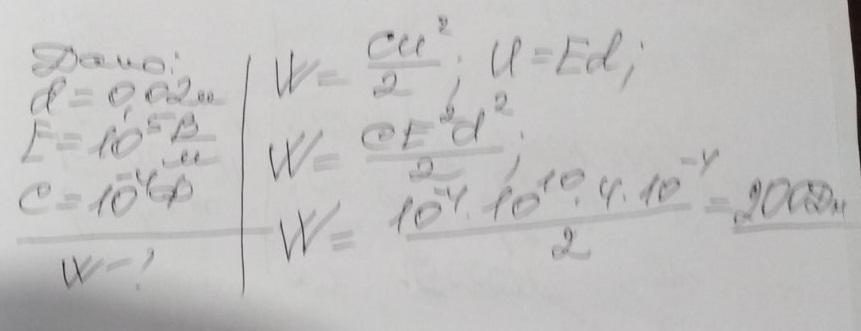 Дано:
d = 0,02 м
E = 10^5 В/м
C = 10^-4 Ф
W - ?
W = CU^2/2; U = Ed;
W = CE^2d^2/2;
W = 10^-4 · 10^10 · 4 · 10^-4/2 = 200 Дж